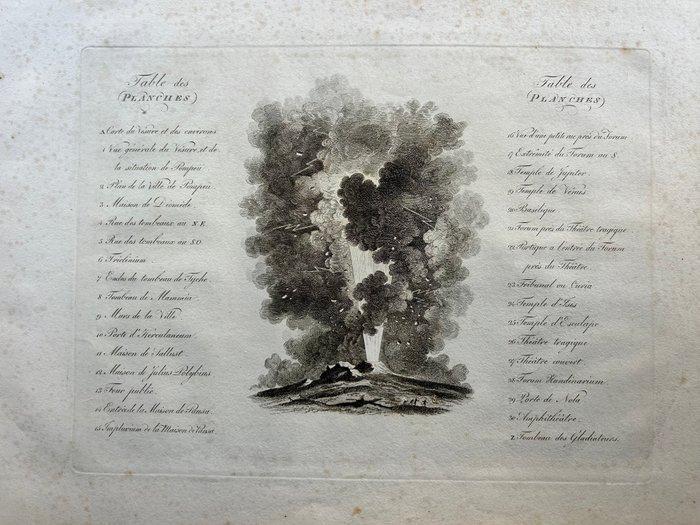 Table des
(PLANCHES)
A Carte du Vesuve et des environs
1 Vue générale du Vesuve, et de
la situation de Pompeii
2 Plan de la Ville de Pompeii.
3 Maison de Diomède
4 Rue des tombeaux au N.E.
5 Rue des tombeaux au S.O.
6 Triclinium
7 Enclos du tombeau de Tyche
8 Tombeau de Mammia
9 Murs de la Ville
10 Porte d'Herculaneum.
11 Maison de Sallust
12 Maison de Julius Polybius
13 Four public.
14 Entrée de la Maison de Pansa.
15 Impluvium de la Maison de Pansa.
Table des
(PLANCHES)
16 Vue d'une petite rue près du Forum
17 Extrémité du Forum au S.
18 Temple de Jupiter
19 Temple de Vénus
20 Basilique
21 Forum près du Théâtre tragique
22 Portique a l'entrée du Forum
près du Théâtre.
23 Tribunal ou Curia
24 Temple d'Isis
25 Temple d'Esculape
26 Théâtre tragique
27 Théâtre couvert
28 Forum Nundinarium.
29 Porte de Nola
30 Amphithéâtre.
Z Tombeau des Gladiateurs.